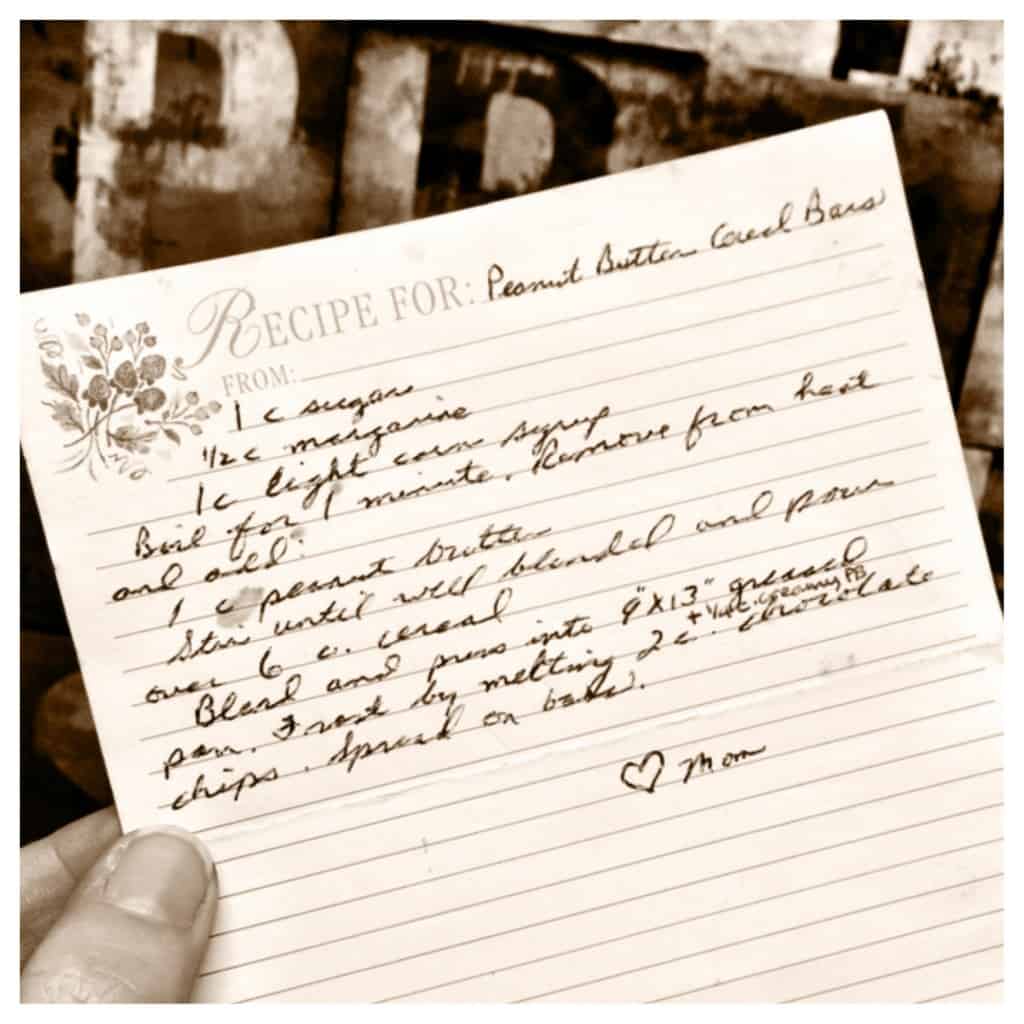 RECIPE FOR: Peanut Butter Cereal Bars
FROM:
1 c sugar
1/2 c margarine
1 c light corn syrup
Boil for 1 minute. Remove from heat
and add:
1 c peanut butter
Stir until well blended and pour
over 6 c. cereal
Blend and press into 9"X13" greased
+ 1/4 c. creamy PB
pan. Frost by melting 2 c. chocolate
chips. Spread on bars.
♡ Mom